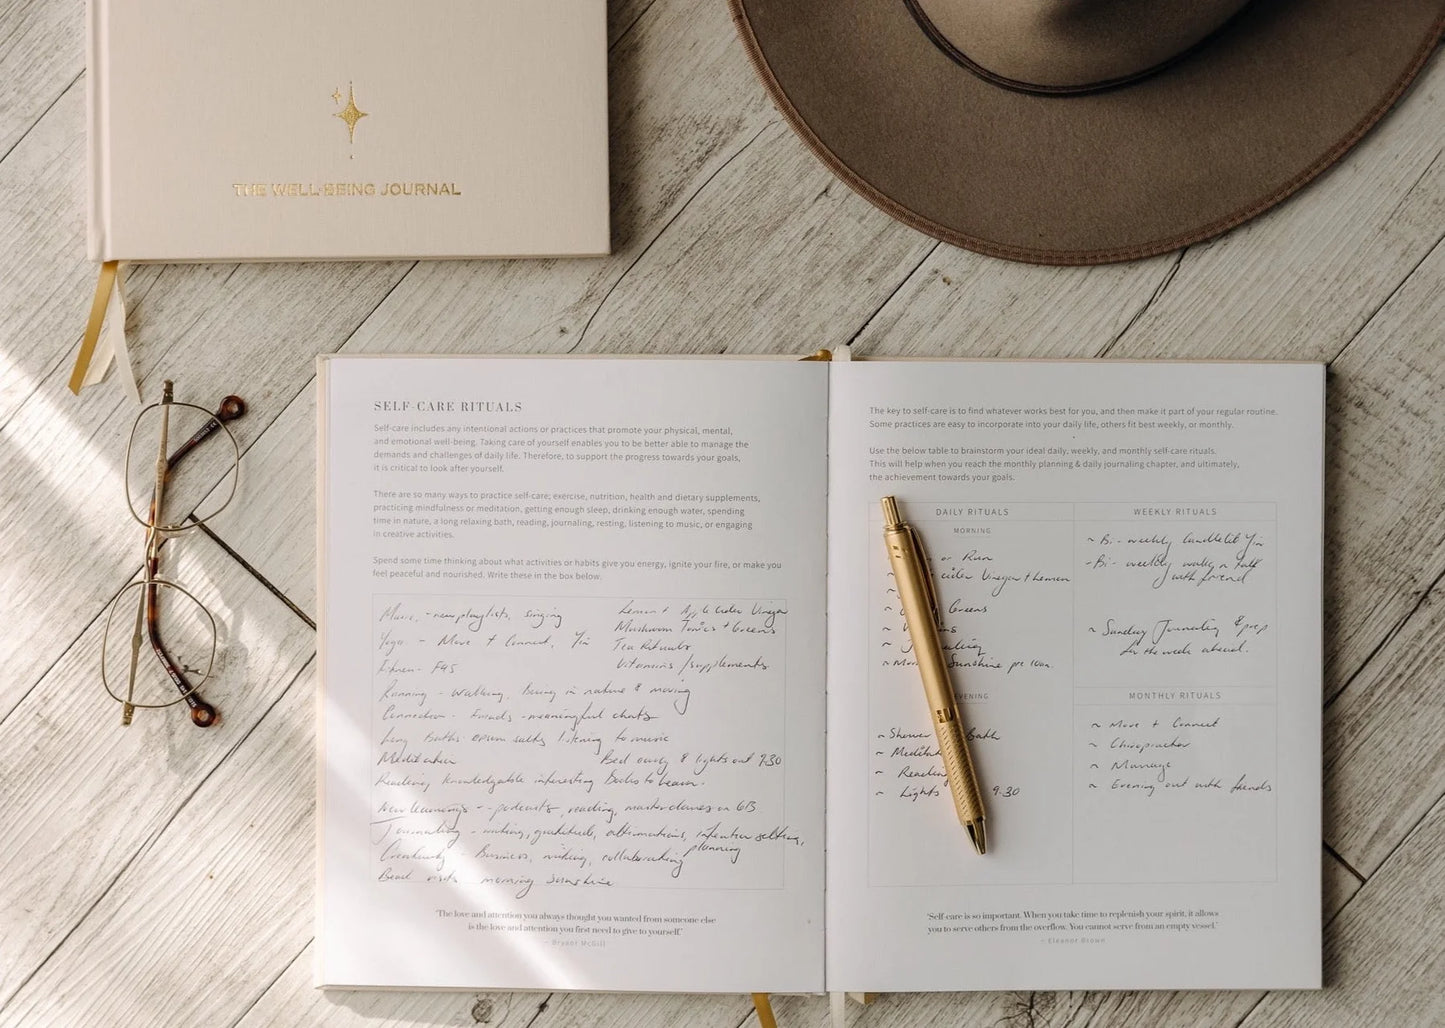 THE WELL-BEING JOURNAL
SELF-CARE RITUALS
Self-care includes any intentional actions or practices that promote your physical, mental,
and emotional well-being. Taking care of yourself enables you to be better able to manage the
demands and challenges of daily life. Therefore, to support the progress towards your goals,
it is critical to look after yourself.
There are so many ways to practice self-care; exercise, nutrition, health and dietary supplements,
practicing mindfulness or meditation, getting enough sleep, drinking enough water, spending
time in nature, a long relaxing bath, reading, journaling, resting, listening to music, or engaging
in creative activities.
Spend some time thinking about what activities or habits give you energy, ignite your fire, or make you
feel peaceful and nourished. Write these in the box below.
Music, - new playlists, singing
Yoga - Move + Connect, Yin
Fitness - F45
Running - walking, Being in nature & moving
Connection - Friends - meaningful chats
Long Baths epsom salts listening to music
Meditation
Reading knowledgable interesting Books to learn.
New learnings - podcasts, reading, masterclasses on
Journaling - writing, gratitude, affirmations, intention setting,
planning
Creativity - Business, writing, collaborating
Beach visits morning Sunshine
Lemon + Apple Cider Vinegar
Mushroom Tonics + Greens
Tea Rituals
Vitamins / supplements
Bed early & lights out 9.30
"The love and attention you always thought you wanted from someone else
is the love and attention you first need to give to yourself."
~ Bryant McGill
The key to self-care is to find whatever works best for you, and then make it part of your regular routine.
Some practices are easy to incorporate into your daily life, others fit best weekly, or monthly.
Use the below table to brainstorm your ideal daily, weekly, and monthly self-care rituals.
This will help when you reach the monthly planning & daily journaling chapter, and ultimately,
the achievement towards your goals.
DAILY RITUALS
MORNING
or Run
cider Vinegar + Lemon
Greens
~ Sunshine pre 10am.
EVENING
~ Shower Bath
~ Meditat
~ Reading
~ Lights 9.30
WEEKLY RITUALS
~ Bi-weekly Candlelit Yin
- Bi-weekly walk n talk
with friend
~ Sunday Journaling & prep
for the week ahead.
MONTHLY RITUALS
~ Move + Connect
~ Chiropractor
~ Massage
~ Evening out with friends
"Self-care is so important. When you take time to replenish your spirit, it allows
you to serve others from the overflow. You cannot serve from an empty vessel."
~ Eleanor Brown